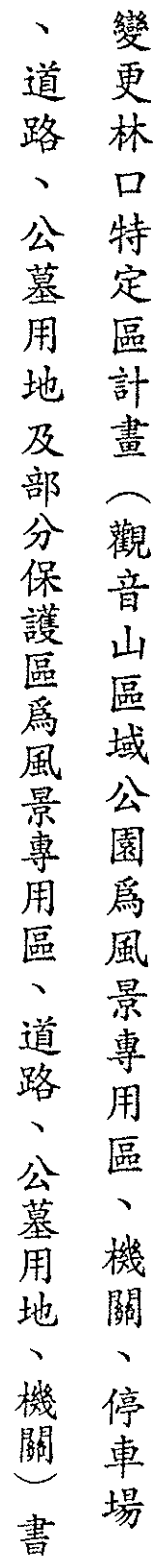 變更林口特定區計畫（觀音山區域公園爲風景專用區、機關、停車場
、道路、公墓用地及部分保護區爲風景專用區、道路、公墓用地、機關）書